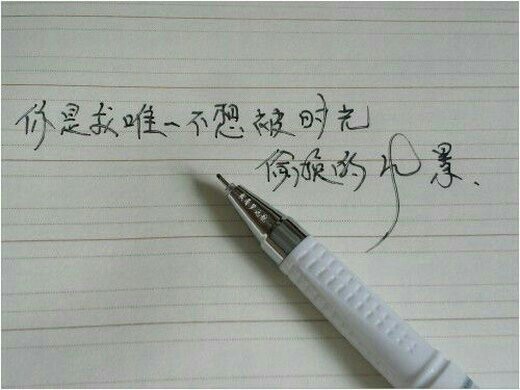 你是我唯一不想被时光
偷换的风景、